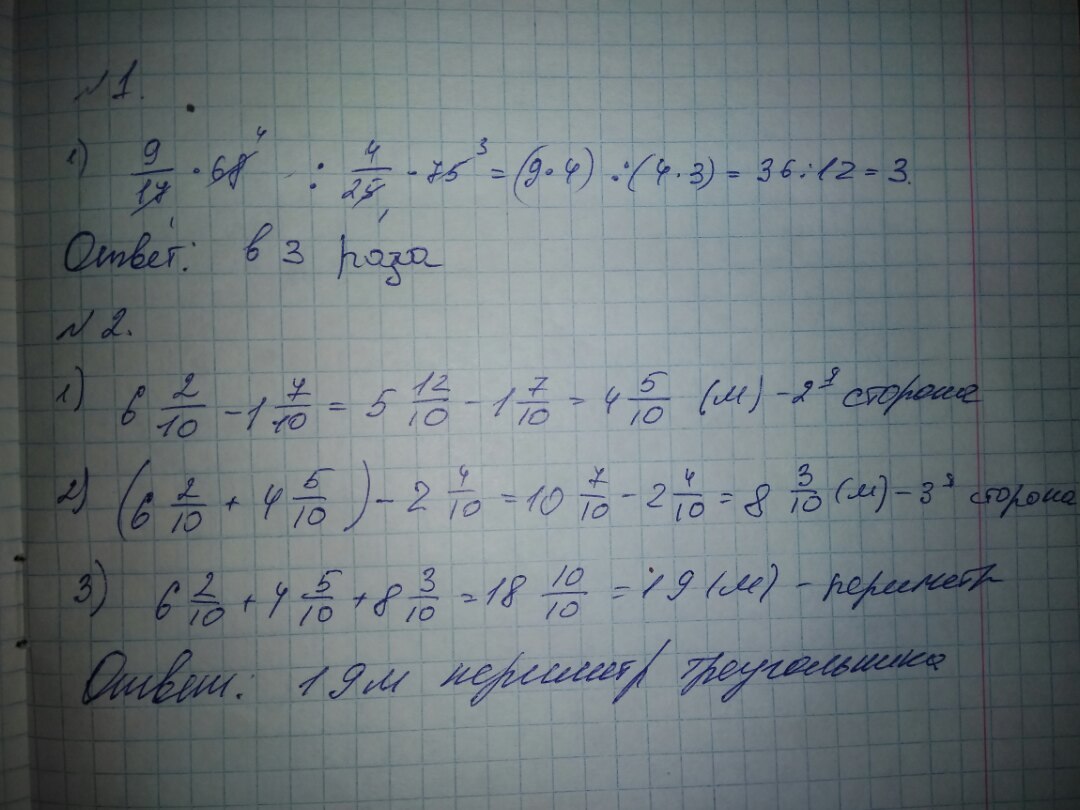 №1.
1) 9/17 · 68 4 : 4/25 · 75 3 = (9·4) : (4·3) = 36:12 = 3.
1 1
Ответ: в 3 раза
№2.
1) 6 2/10 - 1 7/10 = 5 12/10 - 1 7/10 = 4 5/10 (м) - 2я сторона
2) (6 2/10 + 4 5/10) - 2 4/10 = 10 7/10 - 2 4/10 = 8 3/10 (м) - 3я сторона
3) 6 2/10 + 4 5/10 + 8 3/10 = 18 10/10 = 19 (м) - периметр
Ответ: 19м периметр треугольника